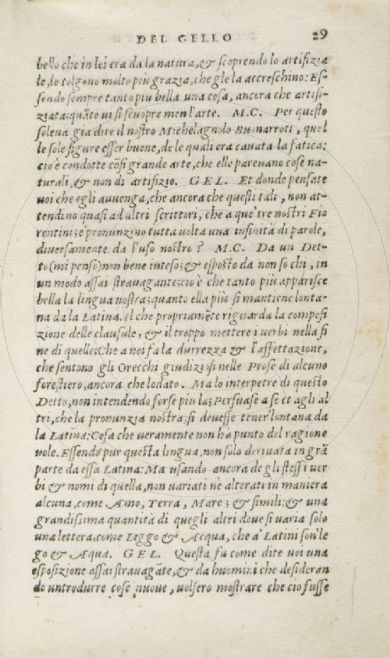 DEL GELLO 29
bello che in lei era da la natura, & scoprendo lo artifizia
le, le tolgono molto più grazia, che gle la accreschino: Es
sendo sempre tanto piu bella una cosa, ancora che artifi-
ziata: quãto ui si scuopre men l'arte. M.C. Per questo
soleua gia dire il nostro Michelagnolo Buonarroti, quel
le sole figure esser buone, de le quali era cauata la fatica:
cio è condotte cõ si grande arte, che elle pareuano cose na
turali, & non di artifizio. GEL. Et donde pensate
uoi che egli auuenga, che ancora che questi tali, non at-
tendino quasi ad altri scrittori, che a que' tre nostri Fio
rentini: e' pronunzino tutta uolta una infinità di parole,
diuersamente da l'uso nostro? M.C. Da un Det-
to (mi penso) non bene inteso: & esposto da non so chi, in
un modo assai strauagante: cio è che tanto più apparisce
bella la lingua nostra: quanto ella più si mantiene lonta-
na da la Latina. Il che propriamẽte riguarda la composi
zione delle clausule, & il troppo mettere i uerbi nella fi
ne di quelle: Che a noi fa la durrezza & l'affettazione,
che sentono gli Orecchi giudiziosi nelle Prose di alcuno
forestiero, ancora che lodato. Ma lo interpetre di questo
Detto, non intendendo forse più la: Persuase a se et agli al
tri, che la pronunzia nostra: si deuesse tener lontana da
la Latina: Cosa che ueramente non ha punto del ragione
uole. Essendo pur questa lingua, non solo deriuata in grã
parte da essa Latina: Ma usando ancora de gli stessi uer
bi & nomi di quella, non uariati ne alterati in maniera
alcuna, come Amo, Terra, Mare; & simili: & una
grandissima quantità di quegli altri doue si uaria solo
una lettera, come Leggo & Acqua, che a' Latini son le
go & Aqua. GEL. Questa fu come dite uoi una
esposizione assai strauagãte, & da huomini che desideran
do untrodurre cose nuoue, uolsero mostrare che cio fusse